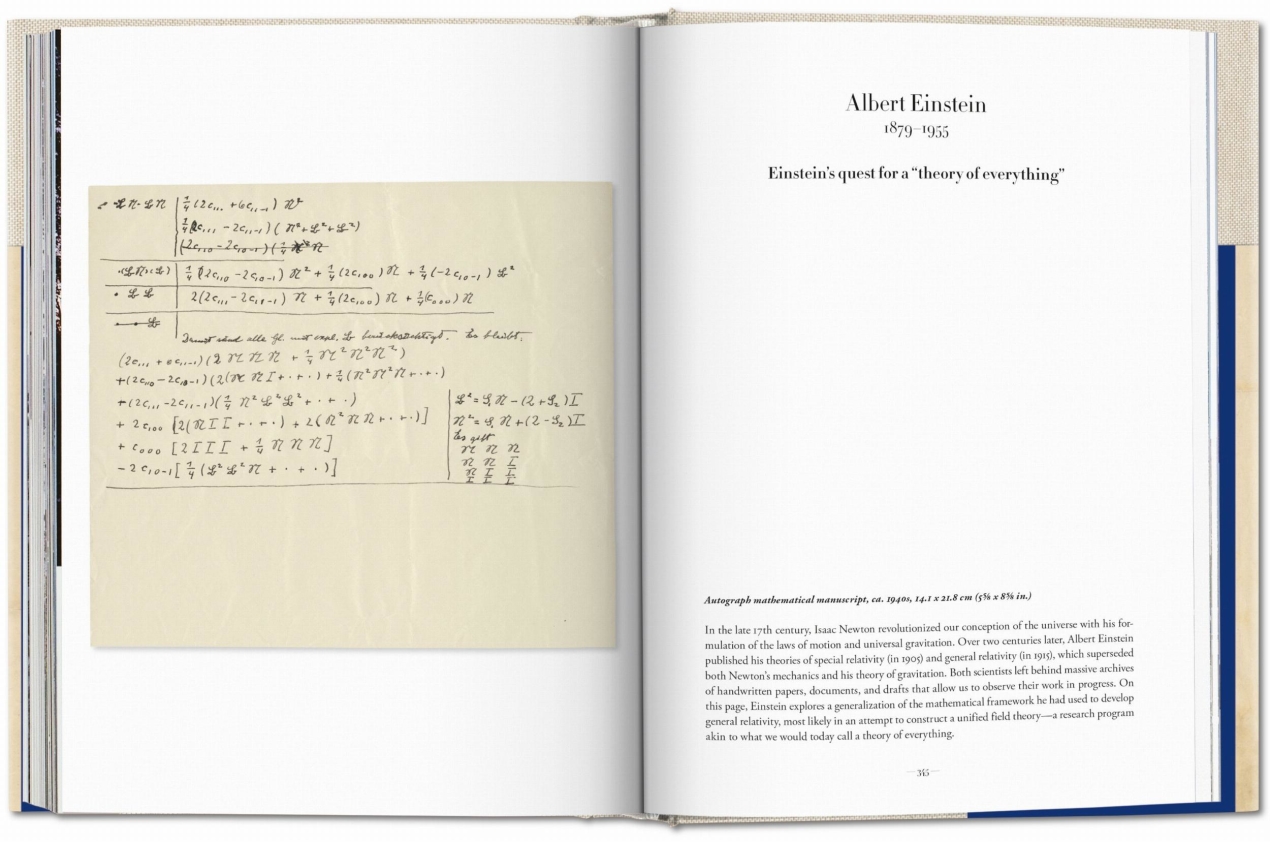 ¼(2c₁₁₁ + 6c₁₁₋₁) 𝔑²
¼(2c₁₁₁ − 2c₁₁₋₁)(𝔑² + 𝔏² + 𝔏²)
¼(2c₁₁₀ − 2c₁₀₋₁) 𝔑² + ¼(2c₁₀₀) 𝔑 + ¼(−2c₁₀₋₁) 𝔏²
2(2c₁₁₁ − 2c₁₁₋₁) 𝔑 + ¼(2c₁₀₀) 𝔑 + ¼(c₀₀₀) 𝔑
Damit sind alle gl. mit expl. 𝔏 berücksichtigt. Es bleibt.
(2c₁₁₁ + 6c₁₁₋₁)(2 𝔑 𝔑 𝔑 + ¼ 𝔑²𝔑²𝔑²)
+(2c₁₁₀ − 2c₁₀₋₁)(2(𝔑 𝔑 I + · + ·) + ¼(𝔑²𝔑²𝔑 + · + ·)
+(2c₁₁₁ − 2c₁₁₋₁)(¼ 𝔑² 𝔏² 𝔏² + · + ·)
+ 2c₁₀₀ [2(𝔑 I I + · + ·) + 2(𝔑² 𝔑 𝔑 + · + ·)]
+ c₀₀₀ [2 I I I + ¼ 𝔑 𝔑 𝔑]
− 2c₁₀₋₁[¼(𝔏² 𝔏² 𝔑 + · + ·)]
Es gilt
𝔑 𝔑 𝔑
𝔑 𝔑 I
𝔑 I I
I I I
Albert Einstein
1879–1955
Einstein's quest for a “theory of everything”
Autograph mathematical manuscript, ca. 1940s, 14.1 x 21.8 cm (5⅝ x 8⅝ in.)
In the late 17th century, Isaac Newton revolutionized our conception of the universe with his for-
mulation of the laws of motion and universal gravitation. Over two centuries later, Albert Einstein
published his theories of special relativity (in 1905) and general relativity (in 1915), which superseded
both Newton's mechanics and his theory of gravitation. Both scientists left behind massive archives
of handwritten papers, documents, and drafts that allow us to observe their work in progress. On
this page, Einstein explores a generalization of the mathematical framework he had used to develop
general relativity, most likely in an attempt to construct a unified field theory—a research program
akin to what we would today call a theory of everything.
—345—